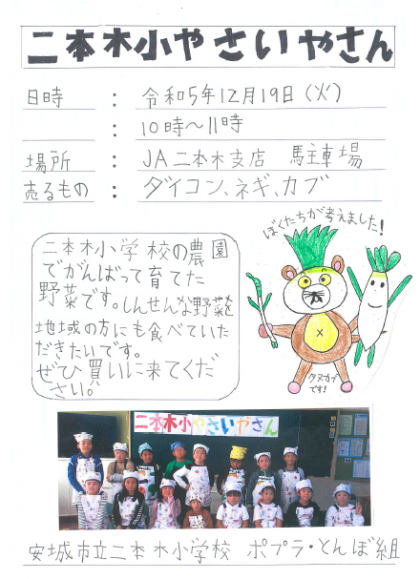 二本木小やさいやさん
日時 : 令和5年12月19日(火)
: 10時~11時
場所 : JA二本木支店 駐車場
売るもの : ダイコン、ネギ、カブ
ぼくたちが考えました!
二本木小学校の農園
でがんばって育てた
野菜です。しんせんな野菜を
地域の方にも食べていた
だきたいです。
ぜひ買いに来てくだ
さい。
です!
二本木小やさいやさん
安城市立二本木小学校 ポプラ・とんぼ組